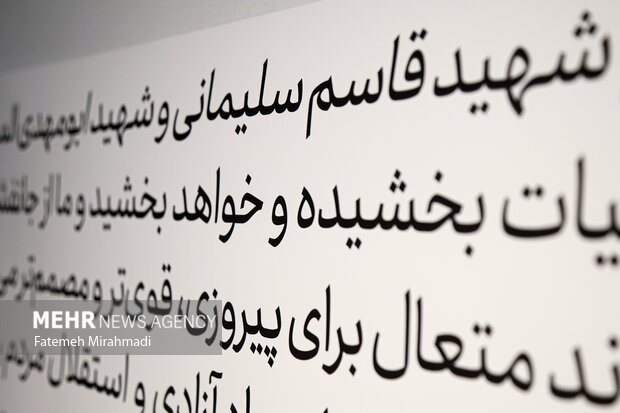 شهید قاسم سلیمانی و شهید ابومهدی
یات بخشیده و خواهد بخشید و ما از
ند متعال برای پیروزی، قوی‌تر و مصمم‌تر
آزادی و استقلال مردم
MEHR NEWS AGENCY
Fatemeh Mirahmadi